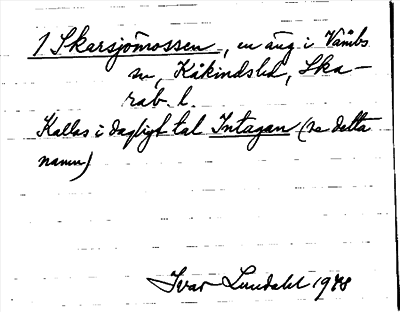 1 Skarsjömossen, en äng i Våmbs
sn, Kåkinds hd, Ska-
rab. l.
Kallas i dagligt tal Intagan (se detta
namn)
Ivar Lundahl 1948